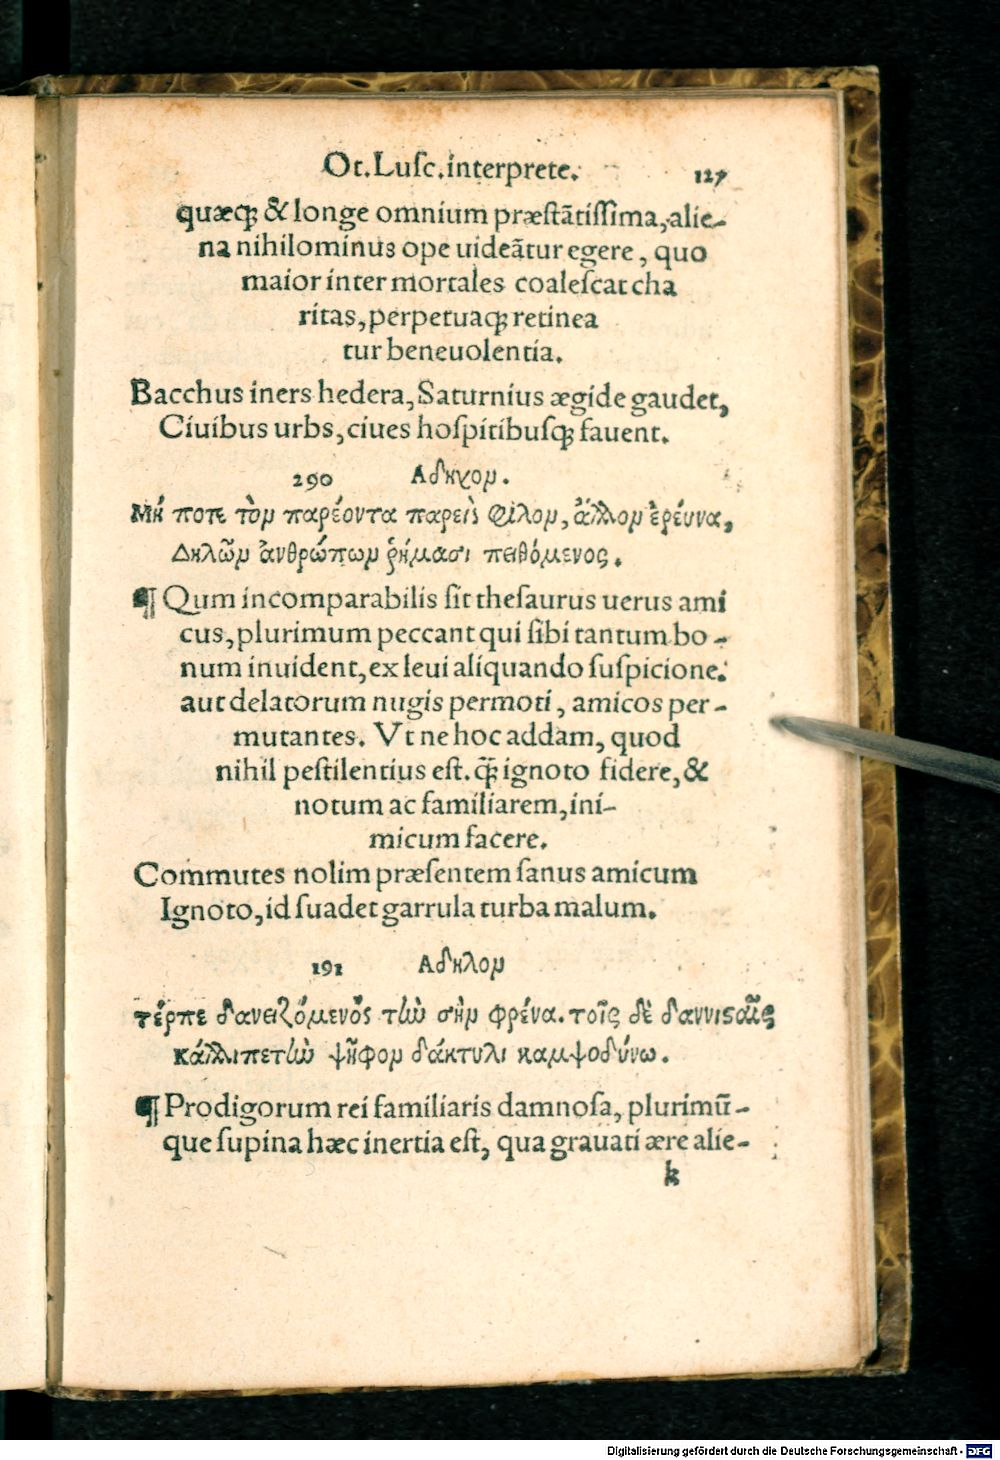 Ot.Luſc.interprete. 127
quæq; & longe omnium præſtãtiſſima, alie-
na nihilominus ope uideãtur egere, quo
maior inter mortales coaleſcat cha
ritas, perpetuaq; retinea
tur beneuolentia.
Bacchus iners hedera, Saturnius ægide gaudet,
Ciuibus urbs, ciues hoſpitibuſq; fauent.
290 Αδηλομ.
Μή ποτε τὸμ παρέοντα παρεὶς φίλομ, ἄλλομ ἐρέυνα,
Δηλῶμ ἀνθρώπωμ ῥήμασι πειθόμενος.
¶ Qum incomparabilis ſit theſaurus uerus ami
cus, plurimum peccant qui ſibi tantum bo-
num inuident, ex leui aliquando ſuſpicione:
aut delatorum nugis permoti, amicos per-
mutantes. Vt ne hoc addam, quod
nihil peſtilentius eſt. q̃ ignoto fidere, &
notum ac familiarem, ini-
micum facere.
Commutes nolim præſentem ſanus amicum
Ignoto, id ſuadet garrula turba malum.
191 Αδηλομ
τέρπε δανειζόμενος τὼ σὴμ φρένα. τοῖς δὲ δαννισαῖς
κάλλιπε τὼ ψῆφομ δάκτυλι καμψοδύνω.
¶ Prodigorum rei familiaris damnoſa, plurimũ-
que ſupina hæc inertia eſt, qua grauati ære alie-
k
Digitalisierung gefördert durch die Deutsche Forschungsgemeinschaft - DFG